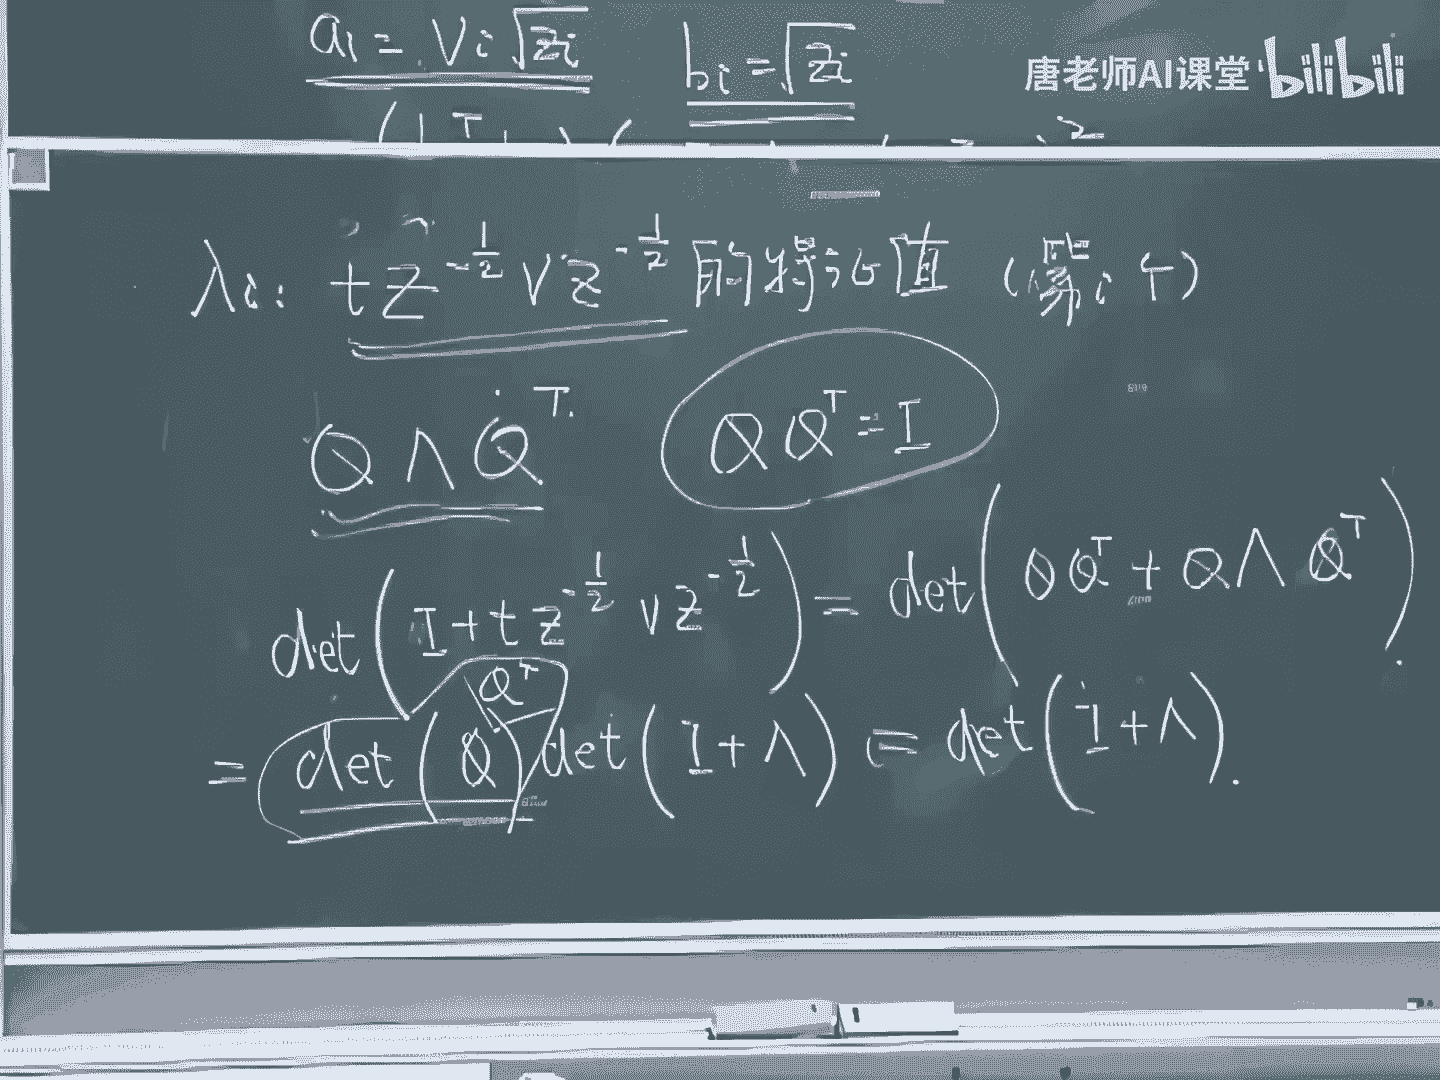 aᵢ = vᵢ√zᵢ bᵢ = √zᵢ
唐老师AI课堂 bilibili
λᵢ: t z^{-1/2} v z^{-1/2} 的特征值 (第i个)
Q Λ Q^T. QQ^T = I
det(I + t z^{-1/2} v z^{-1/2}) = det(QQ^T + QΛQ^T).
Q^T
= det(Q) det(I + Λ) = det(I + Λ).